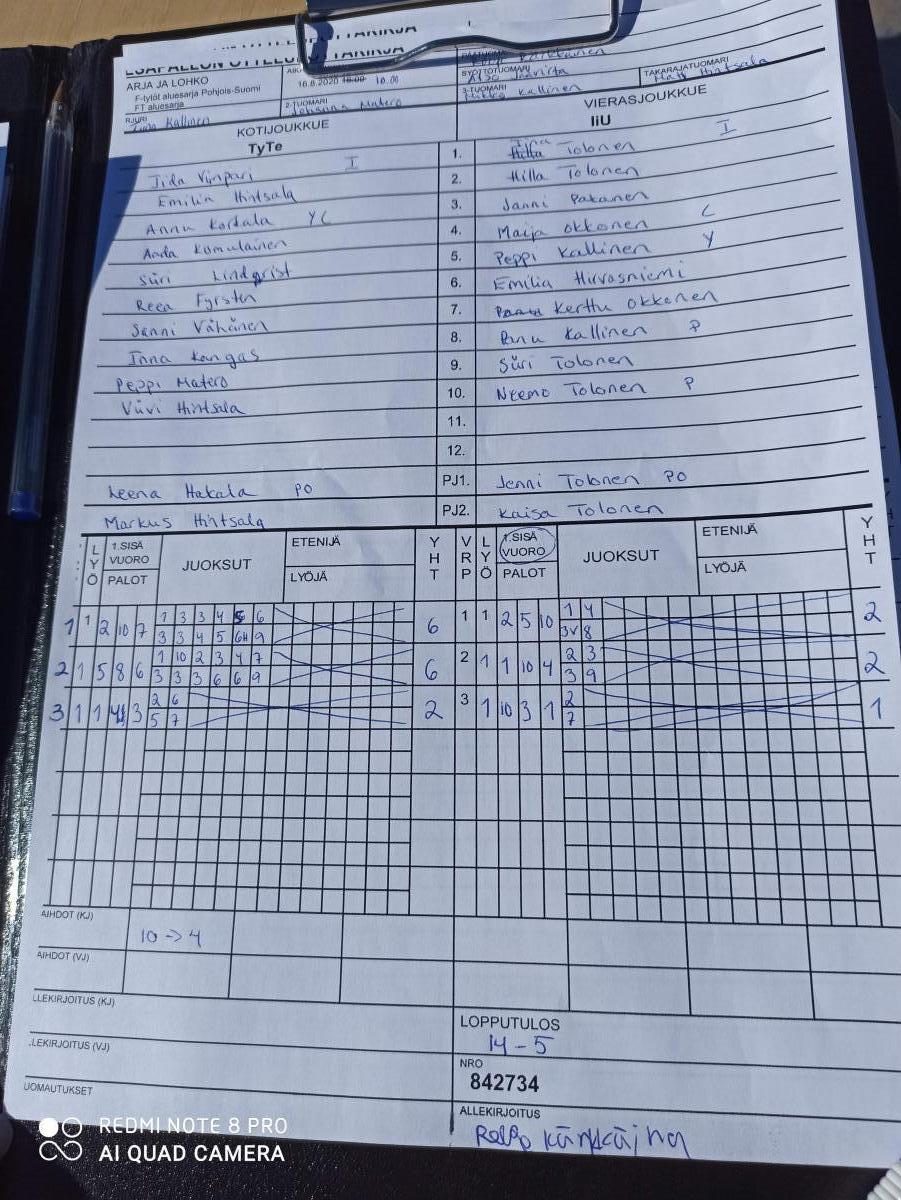 ARJA JA LOHKO
F-tytöt aluesarja Pohjois-Suomi
FT aluesarja
16.8.2020 10.00
SYÖTTÖTUOMARI
TAKARAJATUOMARI
Matti Hintsala
RJURI
Kallinen
2-TUOMARI
Johanna Matero
3-TUOMARI
Mikko Kallinen
KOTIJOUKKUE
VIERASJOUKKUE
TyTe
IiU
Iida Vinpari I 1. Tolonen I
Emilia Hintsala 2. Hilla Tolonen
Annu Kortala YC 3. Janni Pakanen
Aada Komulainen 4. Maija Okkonen C
Siiri Lindqvist 5. Peppi Kallinen Y
Reea Fyrsten 6. Emilia Hirvasniemi
Sanni Vähänen 7. Kerttu Okkonen
Inna Kangas 8. Panu Kallinen P
Peppi Matero 9. Siiri Tolonen
Viivi Hintsala 10. Neemo Tolonen P
11.
12.
Leena Hakala PO PJ1. Jenni Tolonen PO
Markus Hintsala PJ2. Kaisa Tolonen
LYÖ 1.SISÄ VUORO PALOT JUOKSUT ETENIJÄ LYÖJÄ YHT VRP LYÖ 1.SISÄ VUORO PALOT JUOKSUT ETENIJÄ LYÖJÄ YHT
1 1 2 10 7 1 3 3 4 5 6 6 1 1 2 5 10 1 4 2
3 3 4 5 6H 9 3V 8
2 1 5 8 6 1 10 2 3 4 7 6 2 1 1 10 4 2 3 2
3 3 3 6 6 9 3 9
3 1 1 4 3 2 6 2 3 1 10 3 1 2 1
5 7 7
AIHDOT (KJ)
10 -> 4
AIHDOT (VJ)
LLEKIRJOITUS (KJ)
LOPPUTULOS
14 - 5
LEKIRJOITUS (VJ)
NRO
842734
UOMAUTUKSET
ALLEKIRJOITUS
REDMI NOTE 8 PRO
AI QUAD CAMERA